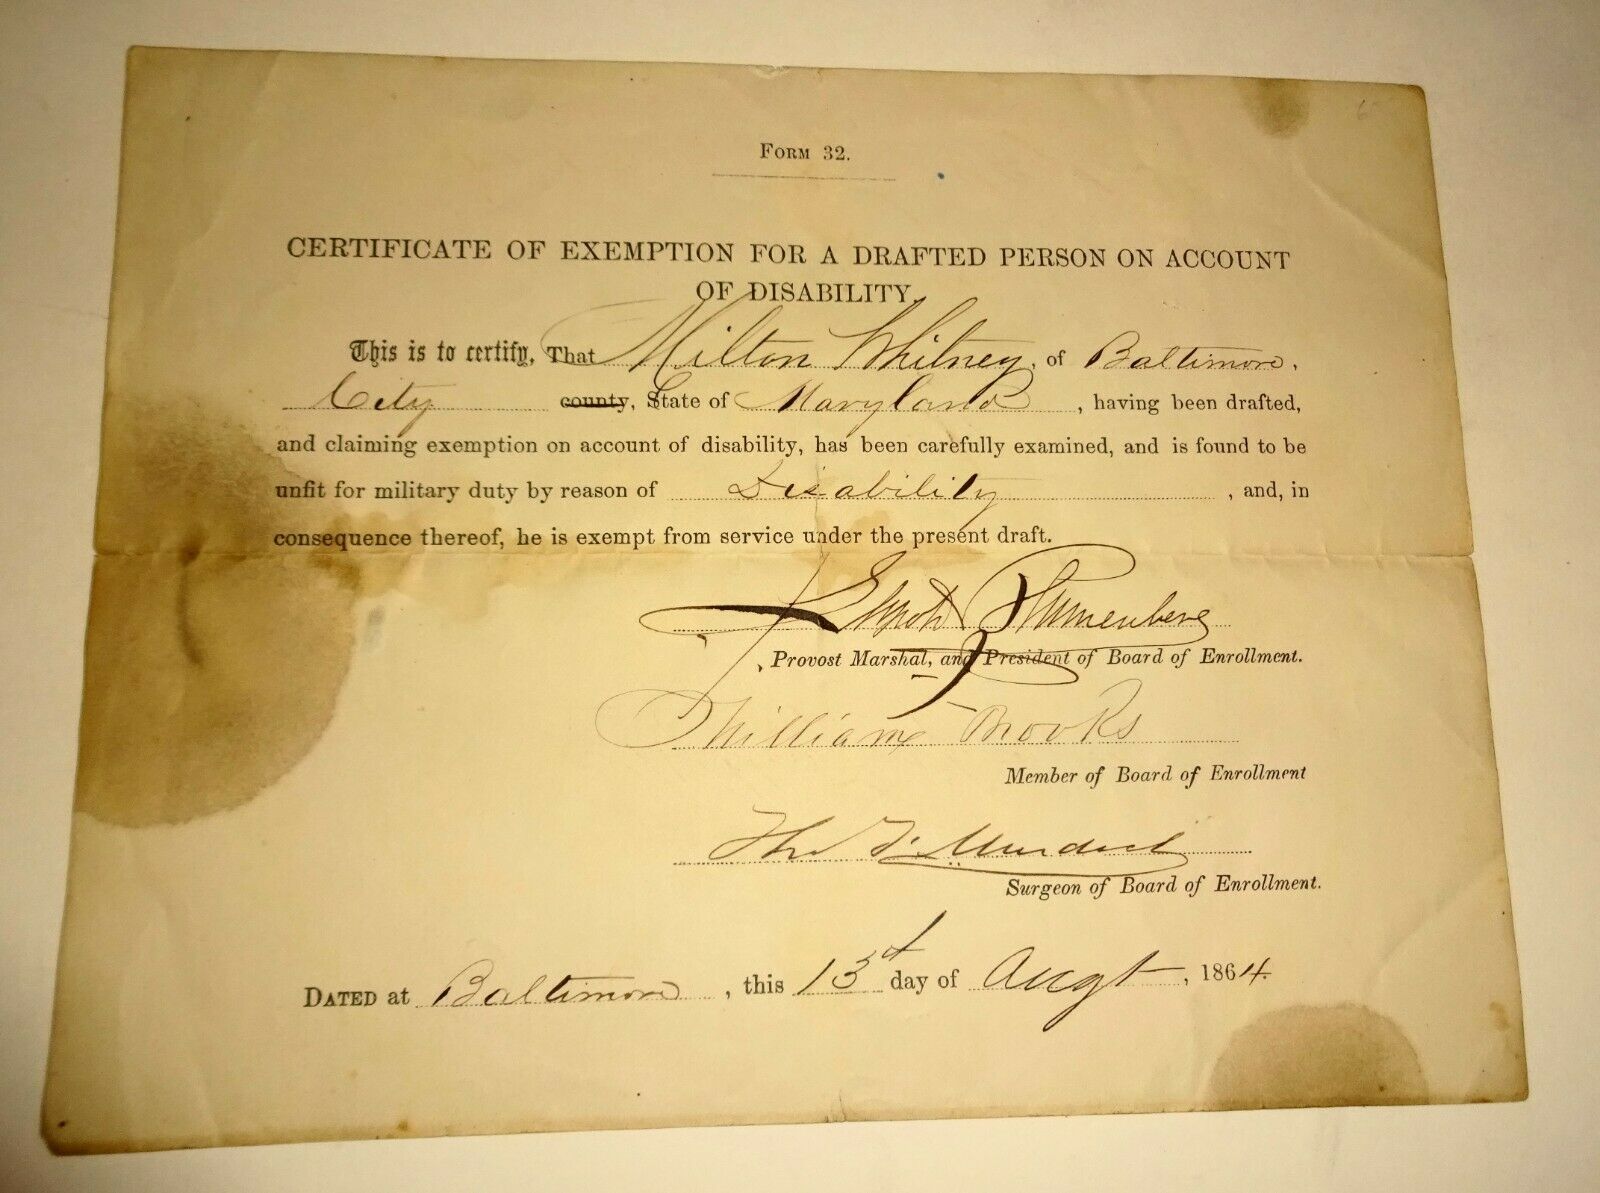 FORM 32.
CERTIFICATE OF EXEMPTION FOR A DRAFTED PERSON ON ACCOUNT
OF DISABILITY.
This is to certify, That Milton Whitney, of Baltimore,
City county, State of Maryland, having been drafted,
and claiming exemption on account of disability, has been carefully examined, and is found to be
unfit for military duty by reason of Disability, and, in
consequence thereof, he is exempt from service under the present draft.
Blumenberg
Provost Marshal, and President of Board of Enrollment.
William Brooks
Member of Board of Enrollment
Murdoch
Surgeon of Board of Enrollment.
DATED at Baltimore, this 13 day of Augt, 1864.